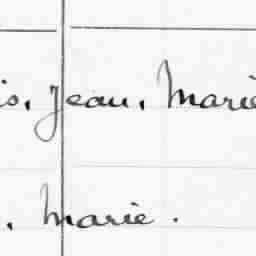 is, Jean, Marie
, Marie.